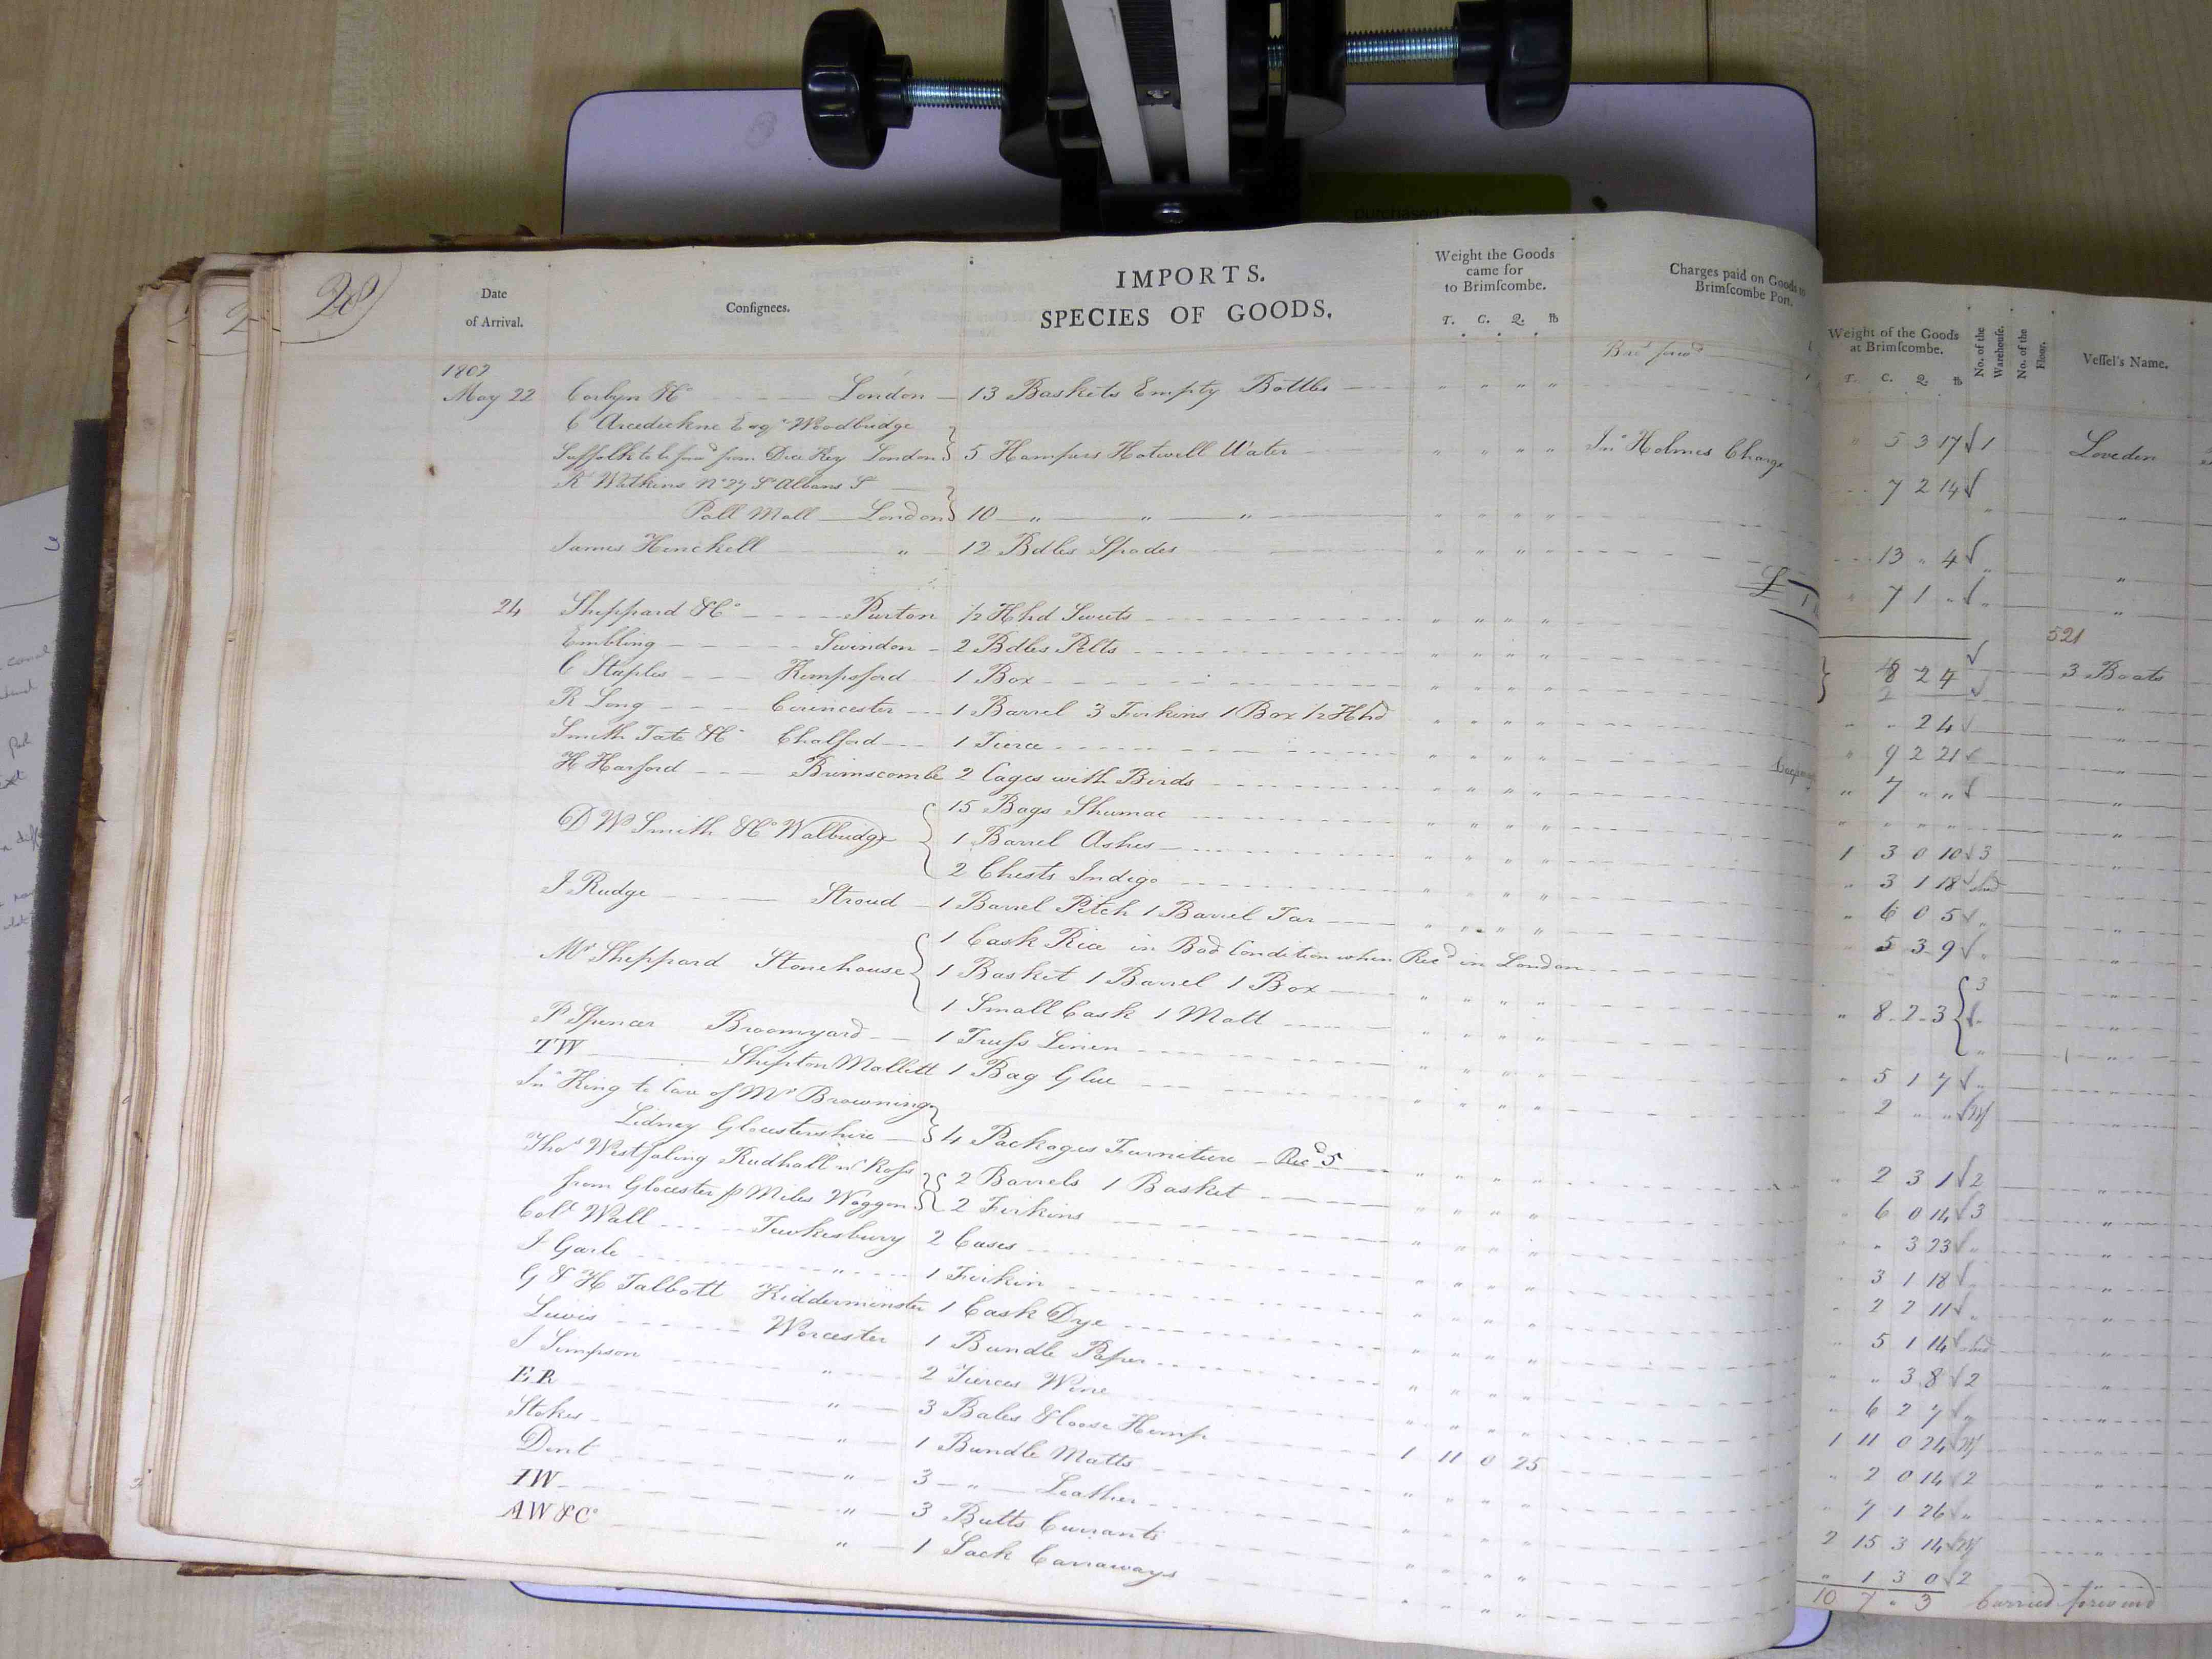 28
Date
of Arrival.
Consignees.
IMPORTS.
SPECIES OF GOODS.
Weight the Goods
came for
to Brimſcombe.
T. C. Q. lb
Charges paid on Goods to
Brimſcombe Port.
Weight of the Goods
at Brimſcombe.
T. C. Q. lb
No. of the
Warehouſe.
No. of the
Floor.
Veſſel's Name.
Bro.t ford
1802
May 22 Corbyn & Co London 13 Baskets Empty Bottles " " " " " 5 3 17 √ 1 Loveden
C Arcedeckne Esqr Woodbridge
Suffolk to be forwd from Dice Key London 5 Hampers Hotwell Water " " " " Jno Holmes Charge 7 2 14 √
R Watkins No 27 St Albans St
Pall Mall London 10 " " " " " " " 13 " 4 √ "
James Henckell " 12 Bdles Spades " " " " " 7 1 " √ " "
£ 1
521
24 Sheppard & Co Purton 1/2 Hhd Sweets " " " " 8 2 4 √ 3 Boats
Embling Swindon 2 Bdles Pelts " " " "
C Staples Kempsford 1 Box " " " " " " 24 √ "
R Long Cirencester 1 Barrel 3 Firkins 1 Box 1/2 Hhd " " " " " 9 2 21 √ "
Smith Tate & Co Chalford 1 Tierce " " " " " 7 " " √ "
H Harford Brimscombe 2 Cages with Birds " " " " " " " " "
D W Smith & Co Walbridge 15 Bags Shumac " " " " 1 3 0 10 √ 3 "
1 Barrel Ashes " " " " " 3 1 18 √ shed "
2 Chests Indigo " " " " " 6 0 5 √ " "
J Rudge Stroud 1 Barrel Pitch 1 Barrel Tar " " " " 5 3 9 √ " "
Mr Sheppard Stonehouse 1 Cask Rice in Bad Condition when Recd in London 3
1 Basket 1 Barrel 1 Box " " " " " 8 2 3 √ " "
1 Small Cask 1 Matt " " " " " "
P Spencer Broomyard 1 Truſs Linen " " " " " 5 1 7 √ "
TW Shepton Mallett 1 Bag Glue " " " " " 2 " " √
Jno King to Care of Mr Browning
Lidney Glocestershire 4 Packages Furniture Recd 5 " " " " " 2 3 1 √ 2 "
Thos Westfaling Rudhall nr Roſs 2 Barrels 1 Basket " " " " " 6 0 14 √ 3 "
from Glocester p Miles Waggon 2 Firkins " " " " " " 3 23 √ " "
Coll Wall Tewkesbury 2 Cases " " " " " 3 1 18 √ " "
J Garle " 1 Firkin " " " " " 2 2 11 √ " "
G & H Talbott Kidderminster 1 Cask Dye " " " " " 5 1 14 √ shed "
Lewis Worcester 1 Bundle Paper " " " " " " 3 8 √ 2 "
J Simpson " 2 Tierces Wine " " " " " 6 2 7 √ " "
ER " 3 Bales & loose Hemp 1 11 0 25 1 11 0 24 √
Stokes " 1 Bundle Matts " " " " " 2 0 14 √ 2 "
Dent " 3 " Leather " " " " " 7 1 26 √ " "
IW " 3 Butts Currants " " " " 2 15 3 14 √
AW & Co " 1 Sack Carraways " " " " " 1 3 0 √ 2 "
10 7 " 3 Carried forward